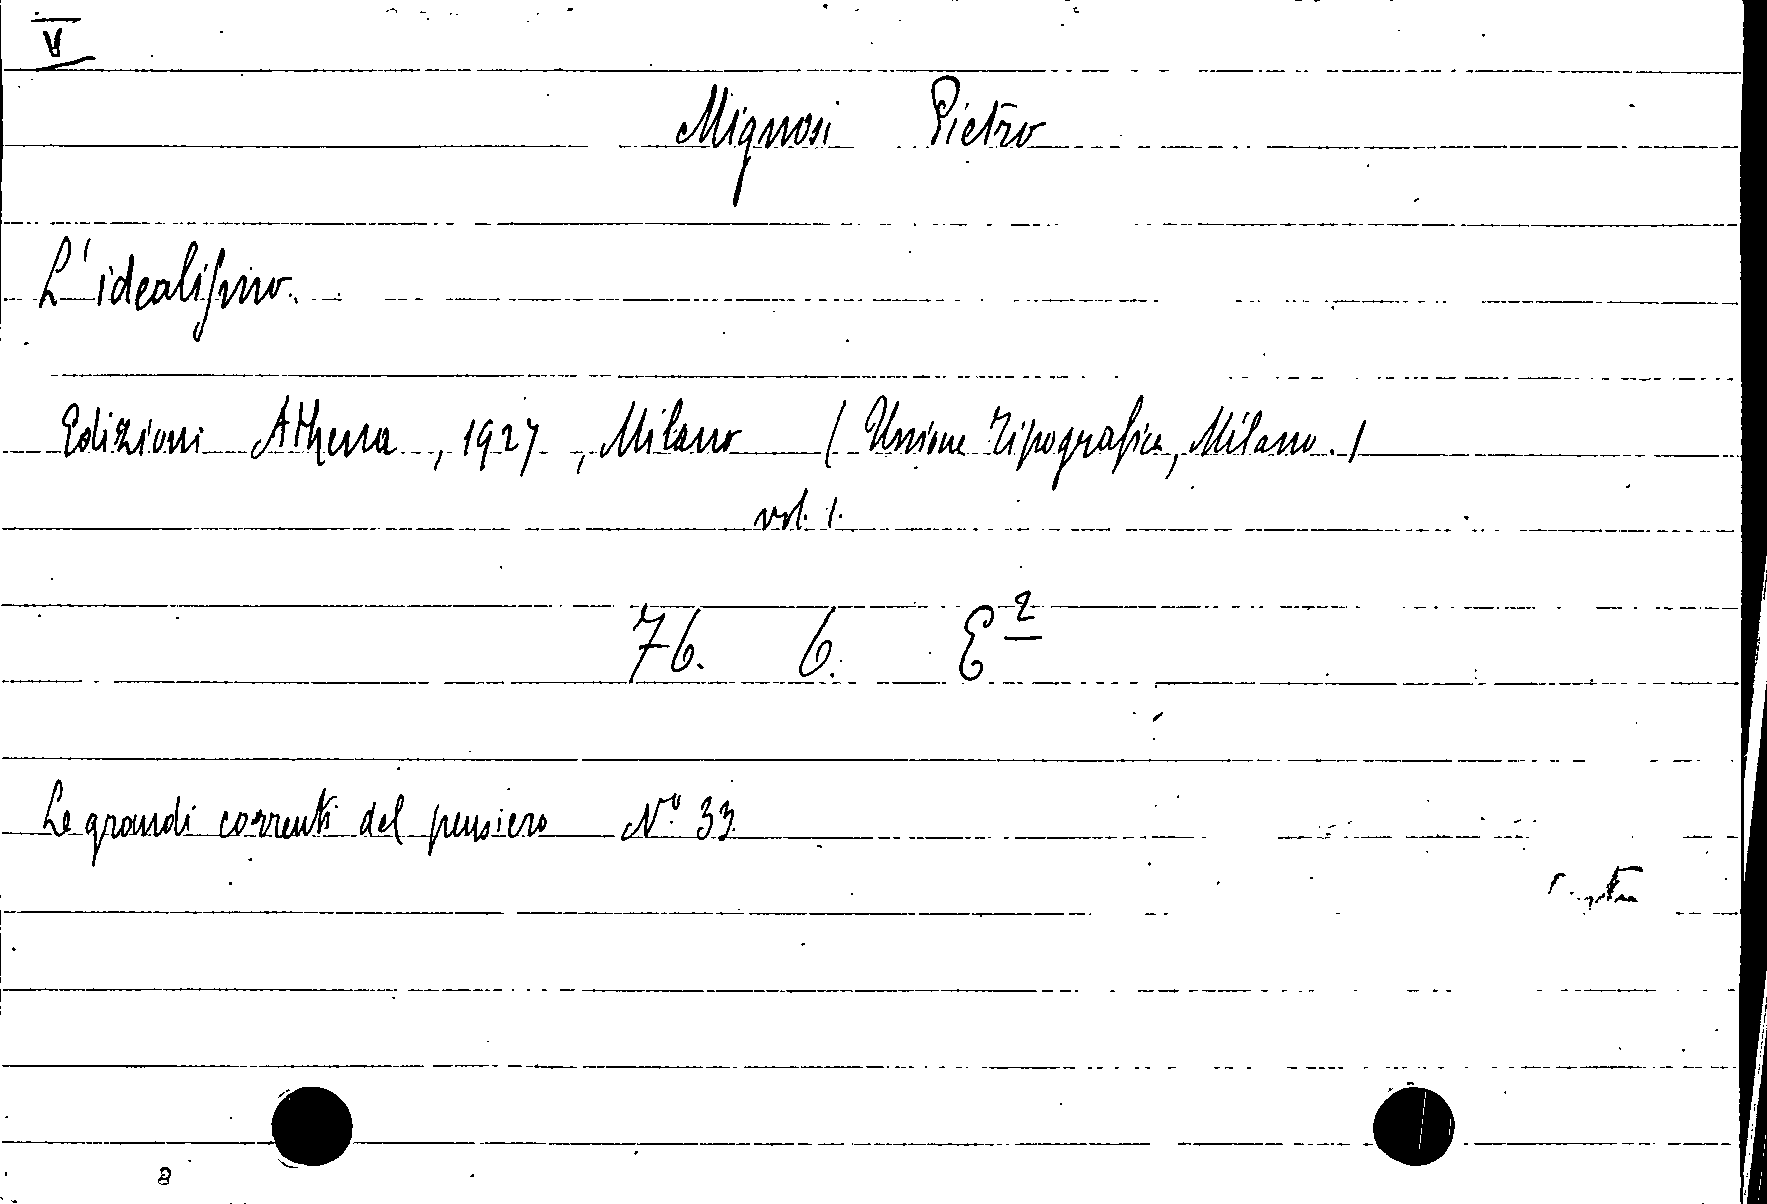 V
Mignosi Pietro
L'idealismo.
Edizioni Athena, 1927, Milano (Unione Tipografica, Milano.)
vol. 1.
76. 6. E²
Le grandi correnti del pensiero Nº 33.
8